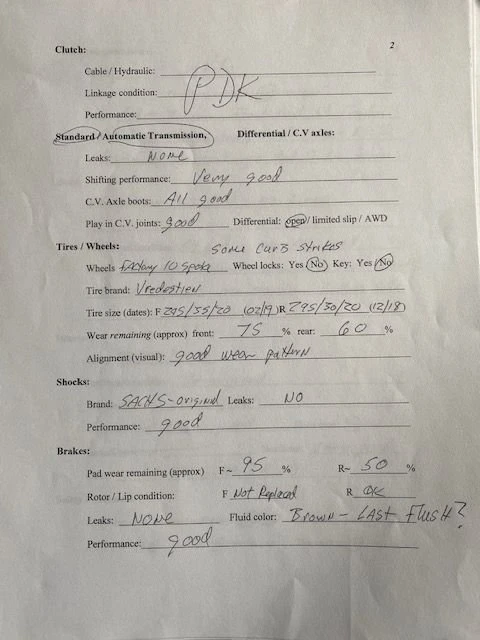 2
Clutch:
Cable / Hydraulic:
Linkage condition: PDK
Performance:
Standard / Automatic Transmission, Differential / C.V axles:
Leaks: NONE
Shifting performance: Very good
C.V. Axle boots: All good
Play in C.V. joints: good Differential: open / limited slip / AWD
Tires / Wheels: Some Curb strikes
Wheels factory 10 spoke Wheel locks: Yes / No Key: Yes / No
Tire brand: Vredestien
Tire size (dates): F 295/35/20 (02/19) R 295/30/20 (12/18)
Wear remaining (approx) front: 75 % rear: 60 %
Alignment (visual): good wear pattern
Shocks:
Brand: SACHS-original Leaks: NO
Performance: good
Brakes:
Pad wear remaining (approx) F~ 95 % R~ 50 %
Rotor / Lip condition: F Not Replaced R OK
Leaks: NONE Fluid color: Brown - LAST Flush?
Performance: good